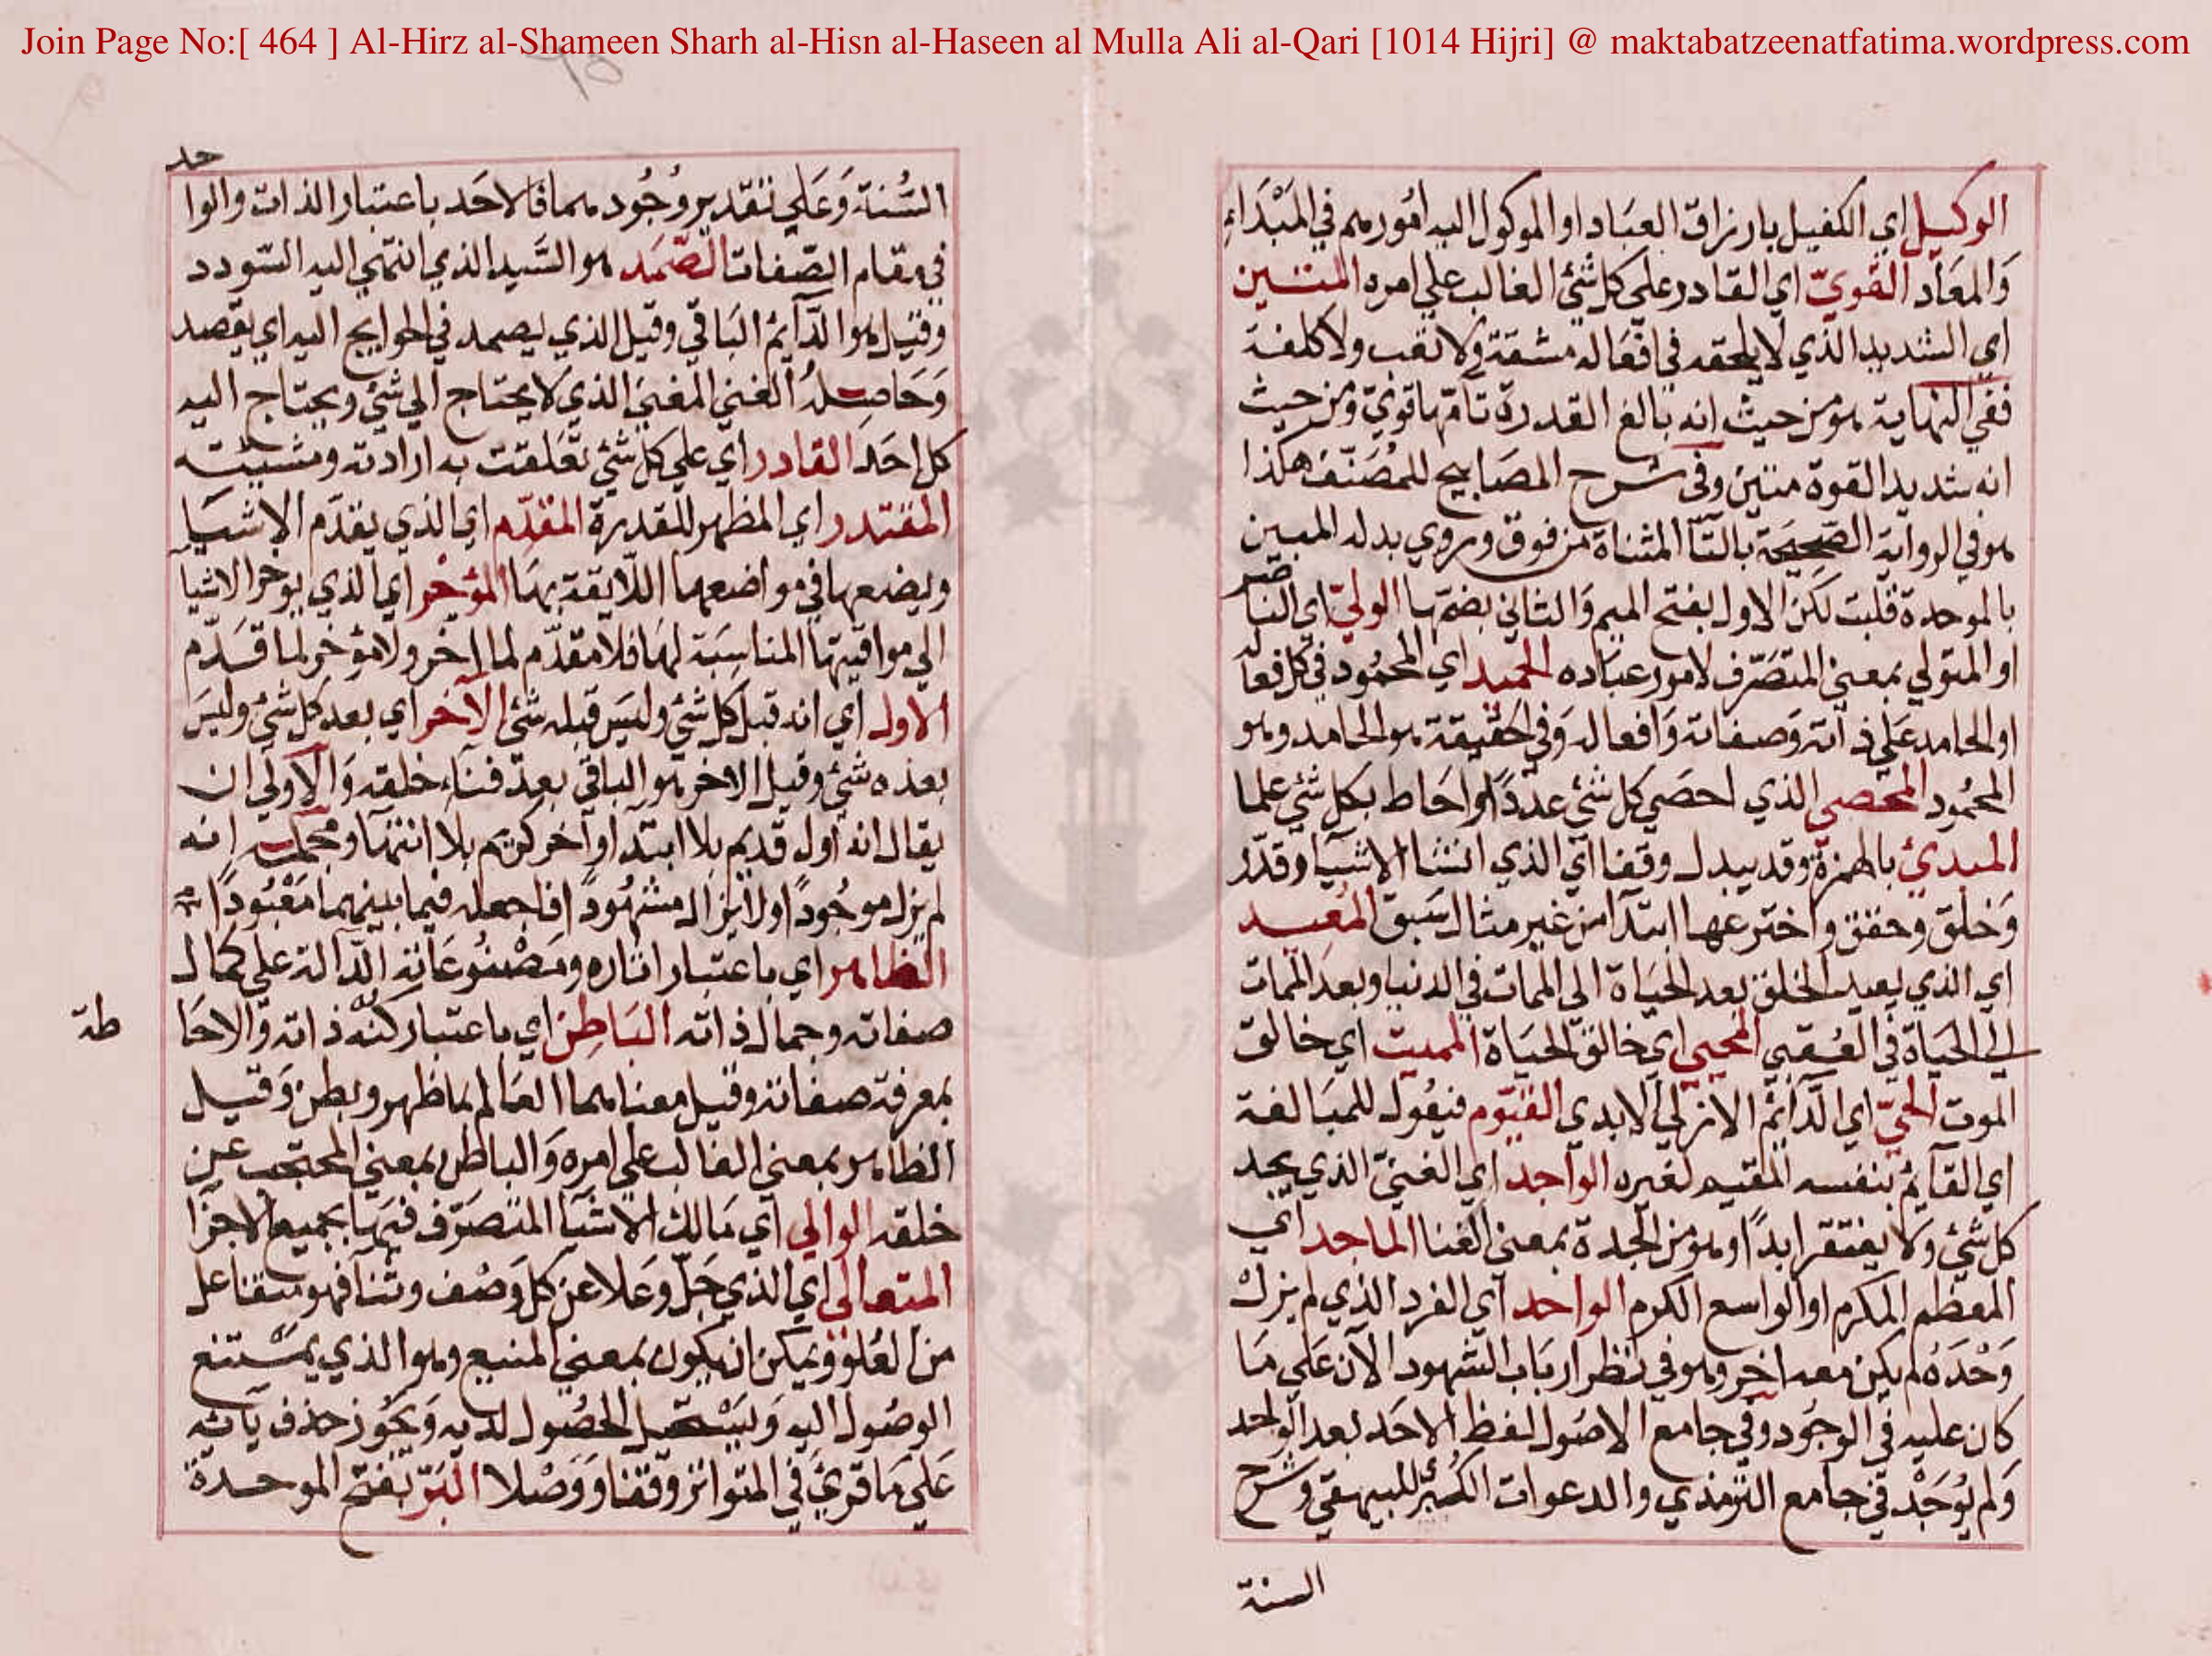 Join Page No:[ 464 ] Al-Hirz al-Shameen Sharh al-Hisn al-Haseen al Mulla Ali al-Qari [1014 Hijri] @ maktabatzeenatfatima.wordpress.com
الوكيل اي الكفيل بارزاق العباد او الموكول اليه امورهم في المَبْدَاءِ
وَالمعَاد القويّ اي القادر علي كل شئ الغالب علي امره المتين
اي الشديد الذي لا يلحقه في افعاله مشقة ولا تعب ولا كلفة
ففي النهاية هو من حيث انه بالغ القدرة تامّها قويّ ومن حيث
انه شديد القوة متين وفى شرح المصابيح للمُصَنّف هكذا
هو في الرواية الصحيحة بالتآ المثناة من فوق وروي بدله المبين
بالموحدة قلت لكن الاول بفتح الميم وَالثاني بضمّها الوليّ اي الناصر
او المتولي بمعني المتصَرّف لامور عباده الحميد اي المحمُود في كل فعاله
او الحامد عَلي ذاته وَصفاته وَافعاله وَفي الحقيقة هو الحامد وهو
المحمُود المحصي الذي احصَي كل شئ عددًا واحَاط بكل شئ علما
المبدئ بالهمزة وقد يبدل وقفا اي الذي انشا الاشيآ وقدّر
وَخلق وحقق واخترعها ابتدآ من غير مثال سَبق المُعيد
اي الذي يعيد الخلق بعد الحيَاة الى الممات في الدنيا وبعد الممات
الي الحيَاة في العُقبي المحيي اي خالق الحيَاة المميت اي خالق
الموت الحيّ اي الدآئم الازلي الابدي القيّوم فيعُول للمبَالغة
اي القآئم بنفسه المقيم لغيره الواجد اي الغنيّ الذي يجد
كل شئ ولا يفتقر ابدًا وهو من الجدة بمعنى الغنا الماجد اي
المعظم المكرم او الواسع الكرم الواحد اي الفرد الذي لم يزلْ
وَحْدَهُ لم يكن معه اخر وهو في نظر ارباب الشهود الآن عَلي مَا
كان عليه في الوجُود وفي جامع الاصُول لفظ الاحَد بعد الواحد
وَلم يُوجَدْ في جامع الترمذي والدعوات الكبير للبيهقي وشرح
السنة
حد
السُّنة وَعَلي تقدير وُجُودهما فالاحَد باعتبار الذات والوا
في مقام الصّفات الصَّمَد هو السَّيد الذي انتهَي اليه السّودد
وقيل هو الدّآئم البَاقي وقيل الذي يصمد في الحوايج اليه اي يقصد
وَحَاصلُه الغني المغني الذي لا يحتاج الي شئ ويحتاج اليه
كل احَد القادر اي علي كل شئ تعَلقت به ارادته ومشيّته
المقتدر اي المظهر للقدرة المقدّم اي الذي يقدّم الاشيآ
ويضعها في مواضعها اللّايقة بهَا المؤخّر اي الذي يوخر الاشيا
الي مواقيتها المناسبَة لهَا فلا مقدّم لما اخر ولا مؤخر لما قَدّم
الاول اي انه قبل كل شئ وليَس قبله شئ الآخر اي بعد كل شئ وليسَ
بعده شئ وقيل الاخر هو الباقي بعد فنآء خلقه وَالاولي ان
يقال انه اول قديم بلا ابتدآ وآخر كريم بلا انتهآ ومجمله انه
لم يزل موجُودًا ولا يزال مشهُودًا فاجعله فيما بينهما مَعْبُودًا
الظاهر اي باعتبار اثاره ومَصْنُوعَاته الدّالة على كمال
صفاته وجمال ذاته البَاطن اي باعتبار كنه ذاته وَالاحَا
طة
بمعرفة صفاته وقيل معناهما العَالم لما ظهر وبطن وَقيل
الظاهر بمعني الغالب علي امره وَالباطن بمعني المحتجب عن
خلقه الوالي اي مَالك الاشيآ المتصَرّف فيهَا بجميع الاجزآ
المتعالى اي الذي جَلّ وعَلا عن كل وَصْف وثنا فهو متفاعل
من العُلوّ ويمكن ان يكون بمعني المنيع وهو الذي يمْتنع
الوصُول اليه وَيسْتحيل الحصُول لديه وَيجُوز حذف يآئه
عَلي مَا قرئ في المتواتر وقفا وَوَصْلا البَرّ بفتح الموحدة